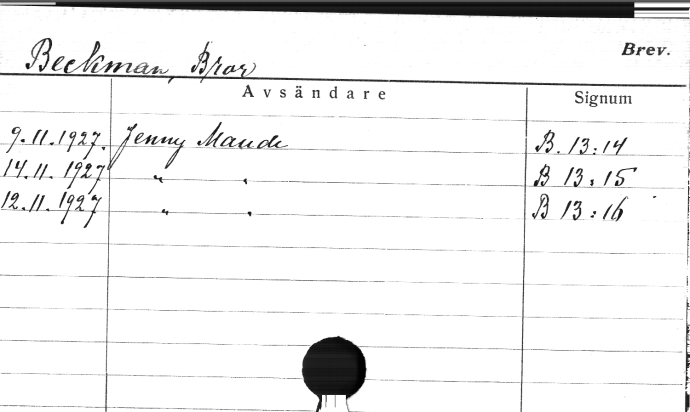 Beckman, Bror Brev.
Avsändare Signum
9.11.1927. Jenny Maude B. 13:14
14.11.1927 " " B 13:15
12.11.1927 " " B 13:16